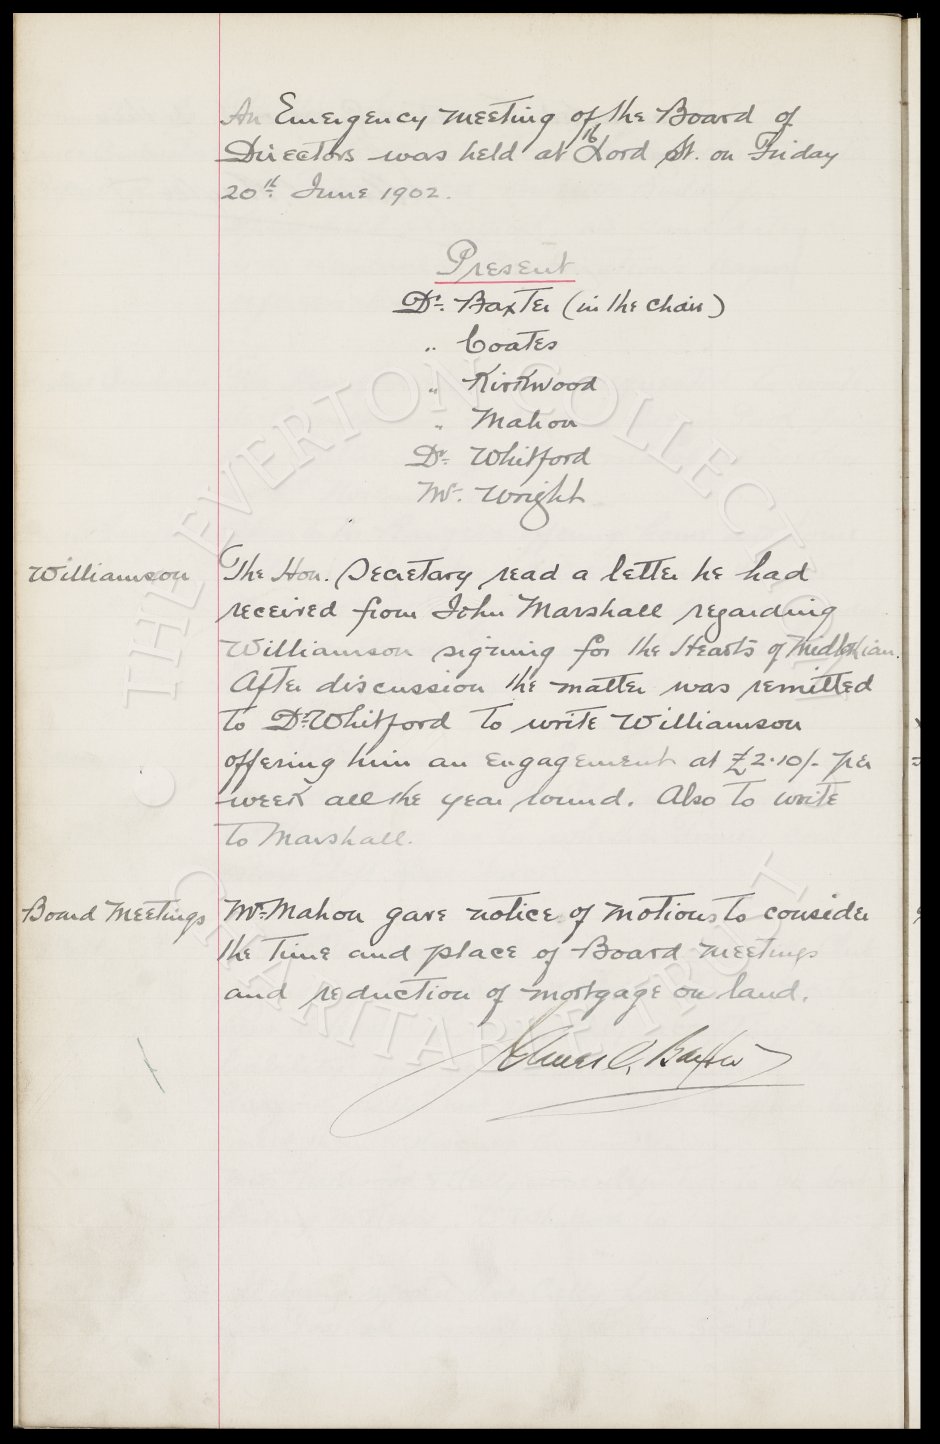 An Emergency meeting of the Board of
Directors was held at 16 Lord St. on Friday
20th June 1902.
Present
Dr. Baxter (in the chair)
" Coates
" Kirkwood
" Mahon
Dr. Whitford
Mr. Wright
Williamson
The Hon. Secretary read a letter he had
received from John Marshall regarding
Williamson signing for the Hearts of Midlothian.
After discussion the matter was remitted
to Dr. Whitford to write Williamson
offering him an engagement at £2.10/- per
week all the year round. Also to write
to Marshall.
Board Meetings
Mr. Mahon gave notice of motions to consider
the time and place of Board meetings
and reduction of mortgage on land.
James C. Baxter
© THE EVERTON COLLECTION
CHARITABLE TRUST